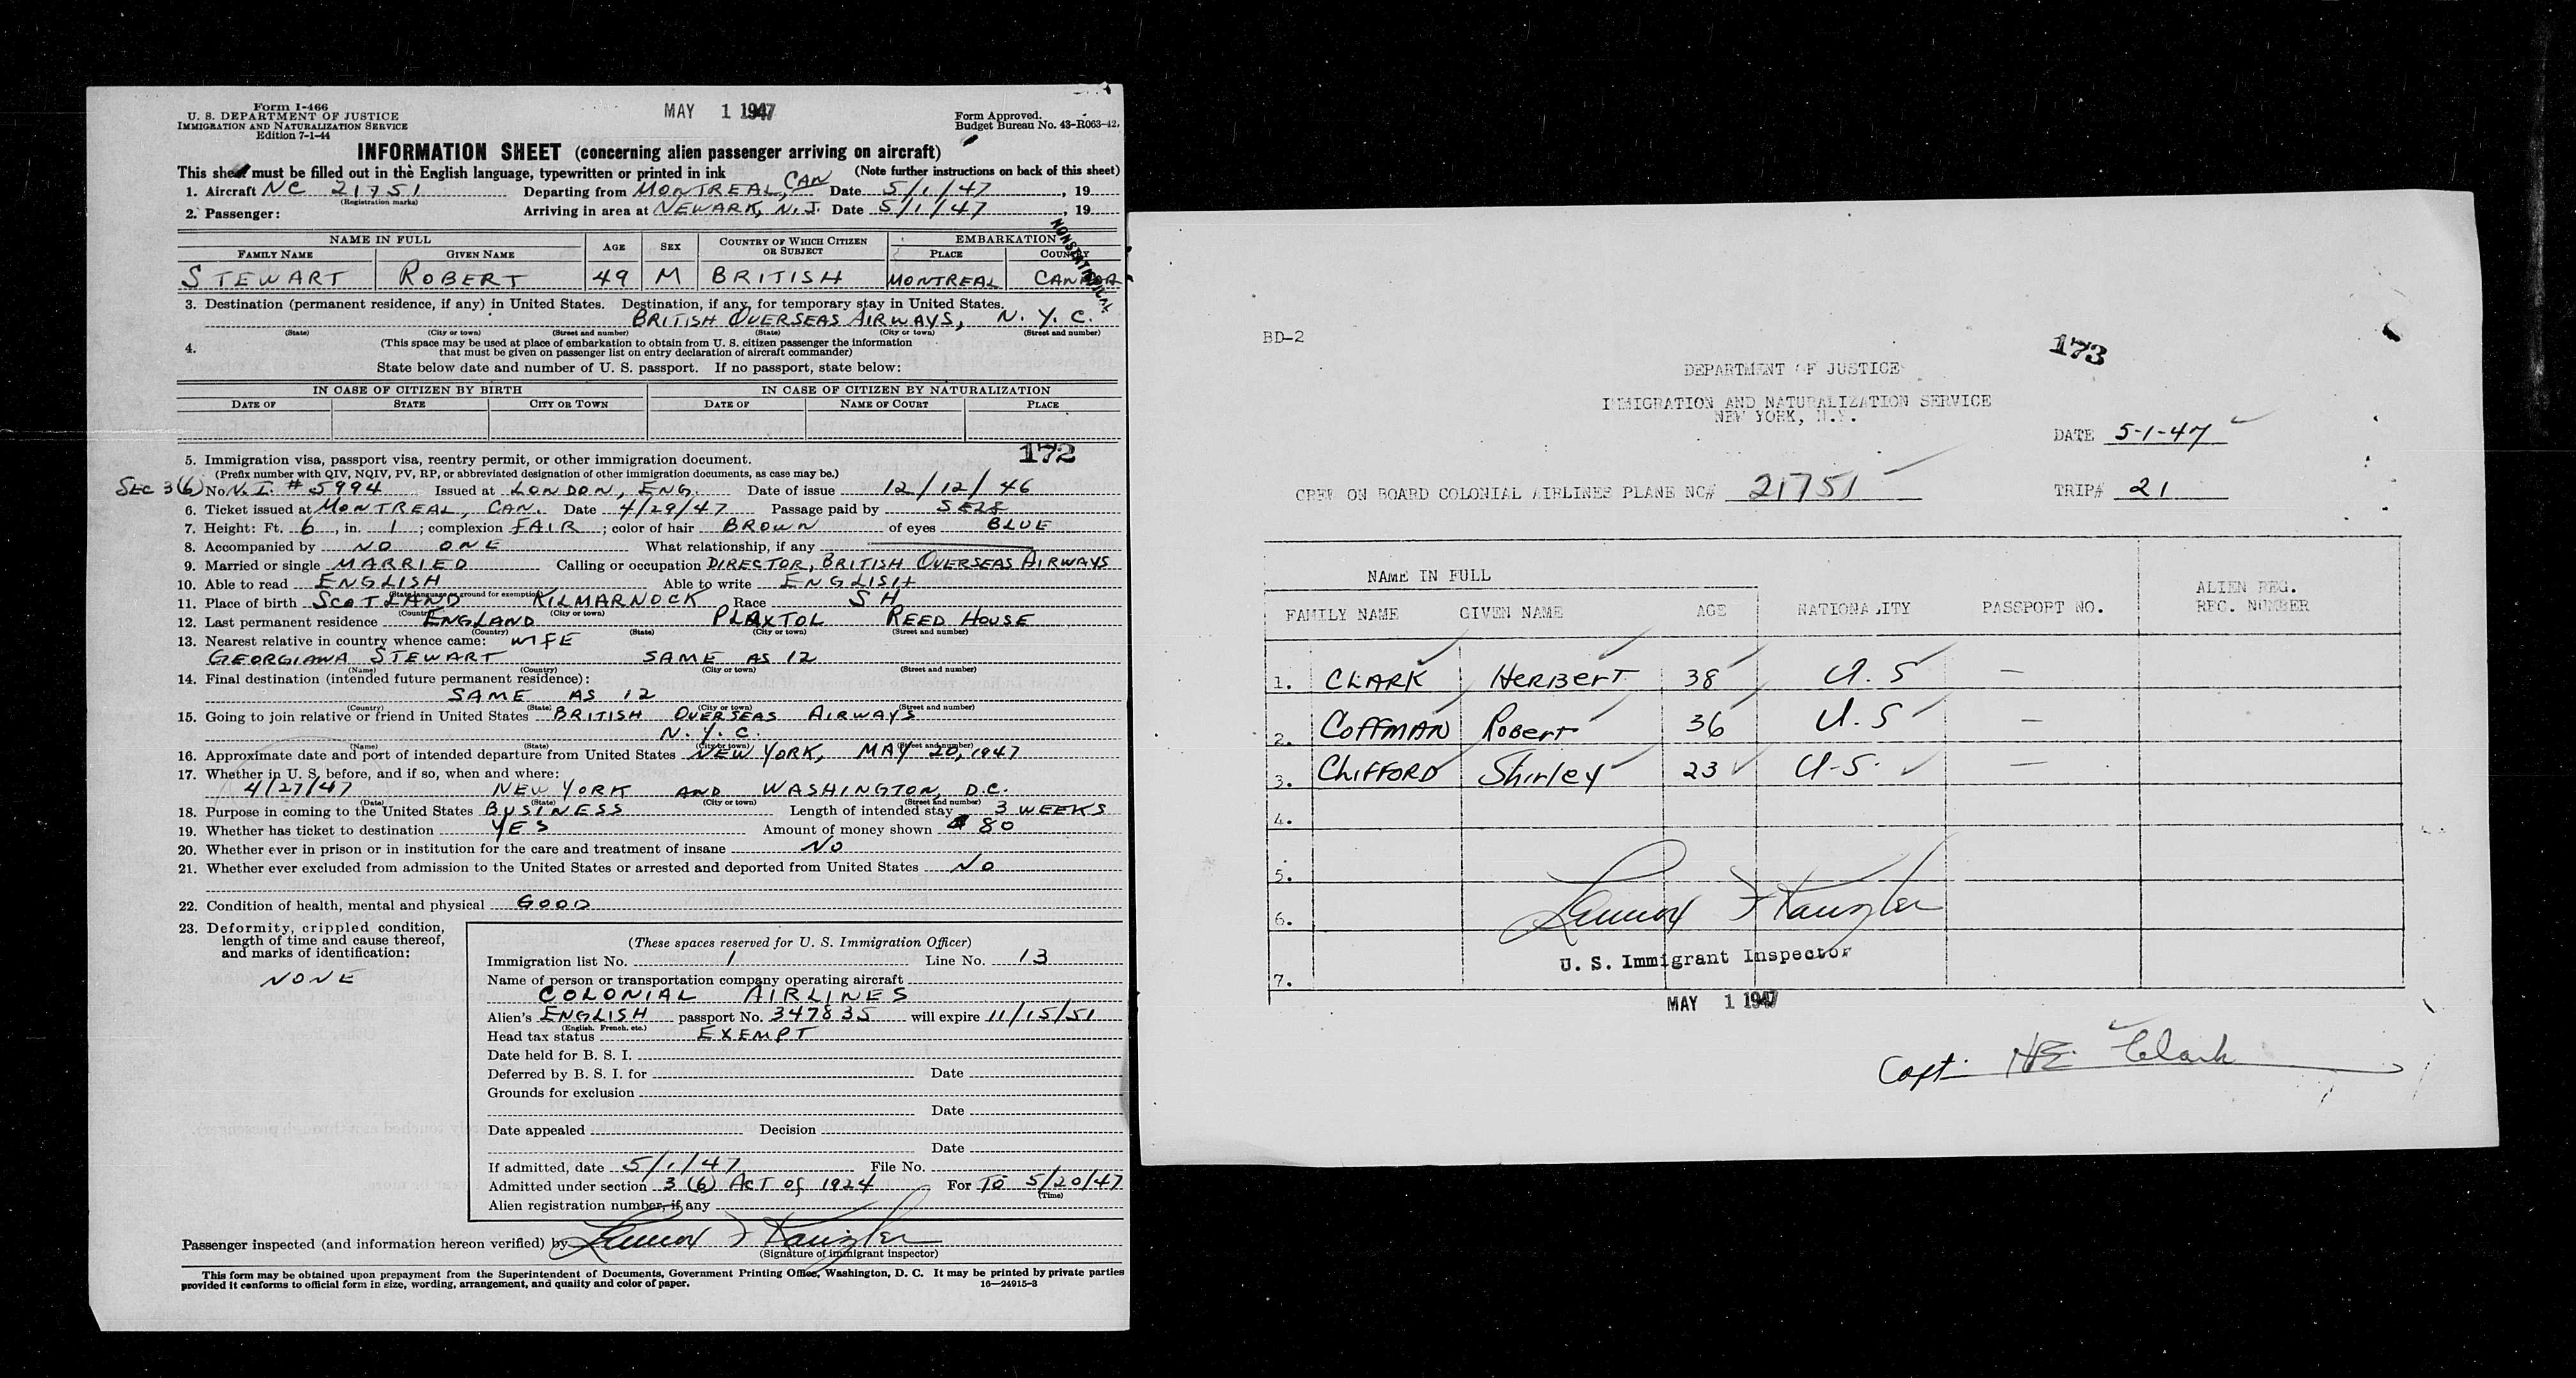 Form I-466
U. S. DEPARTMENT OF JUSTICE
IMMIGRATION AND NATURALIZATION SERVICE
Edition 7-1-44
MAY 1 1947
Form Approved.
Budget Bureau No. 43-R063-42.
INFORMATION SHEET (concerning alien passenger arriving on aircraft)
This sheet must be filled out in the English language, typewritten or printed in ink (Note further instructions on back of this sheet)
1. Aircraft NC 21751 Departing from MONTREAL, CAN Date 5/1/47, 19
(Registration marks)
2. Passenger: Arriving in area at NEWARK, N.J. Date 5/1/47, 19
NONSTATISTICAL
NAME IN FULL AGE SEX COUNTRY OF WHICH CITIZEN OR SUBJECT EMBARKATION
FAMILY NAME GIVEN NAME PLACE COUNTRY
STEWART ROBERT 49 M BRITISH MONTREAL CANADA
3. Destination (permanent residence, if any) in United States. Destination, if any, for temporary stay in United States.
BRITISH OVERSEAS AIRWAYS, N. Y. C.
(State) (City or town) (Street and number) (State) (City or town) (Street and number)
4. (This space may be used at place of embarkation to obtain from U. S. citizen passenger the information
that must be given on passenger list on entry declaration of aircraft commander)
State below date and number of U. S. passport. If no passport, state below:
IN CASE OF CITIZEN BY BIRTH IN CASE OF CITIZEN BY NATURALIZATION
DATE OF STATE CITY OR TOWN DATE OF NAME OF COURT PLACE
172
5. Immigration visa, passport visa, reentry permit, or other immigration document.
(Prefix number with QIV, NQIV, PV, RP, or abbreviated designation of other immigration documents, as case may be.)
SEC 3(6) No. V. I. # 5994 Issued at LONDON, ENG. Date of issue 12/12/46
6. Ticket issued at MONTREAL, CAN. Date 4/29/47 Passage paid by SELF
7. Height: Ft. 6, in. 1; complexion FAIR; color of hair BROWN of eyes BLUE
8. Accompanied by NO ONE What relationship, if any
9. Married or single MARRIED Calling or occupation DIRECTOR, BRITISH OVERSEAS AIRWAYS
10. Able to read ENGLISH Able to write ENGLISH
(State language or ground for exemption)
11. Place of birth SCOTLAND KILMARNOCK Race SH
(Country) (City or town)
12. Last permanent residence ENGLAND PLAXTOL REED HOUSE
(Country) (State) (City or town) (Street and number)
13. Nearest relative in country whence came: WIFE
GEORGIANA STEWART SAME AS 12
(Name) (Country) (City or town) (Street and number)
14. Final destination (intended future permanent residence):
SAME AS 12
(Country) (State) (City or town) (Street and number)
15. Going to join relative or friend in United States BRITISH OVERSEAS AIRWAYS
N. Y. C.
(Name) (State) (City or town) (Street and number)
16. Approximate date and port of intended departure from United States NEW YORK, MAY 20, 1947
17. Whether in U. S. before, and if so, when and where:
4/27/47 NEW YORK AND WASHINGTON, D.C.
(Date) (State) (City or town) (Street and number)
18. Purpose in coming to the United States BUSINESS Length of intended stay 3 WEEKS
19. Whether has ticket to destination YES Amount of money shown $ 80
20. Whether ever in prison or in institution for the care and treatment of insane NO
21. Whether ever excluded from admission to the United States or arrested and deported from United States NO
22. Condition of health, mental and physical GOOD
23. Deformity, crippled condition,
length of time and cause thereof,
and marks of identification:
NONE
(These spaces reserved for U. S. Immigration Officer)
Immigration list No. 1 Line No. 13
Name of person or transportation company operating aircraft
COLONIAL AIRLINES
Alien's ENGLISH passport No. 347835 will expire 11/15/51
(English, French, etc.)
Head tax status EXEMPT
Date held for B. S. I.
Deferred by B. S. I. for Date
Grounds for exclusion
Date
Date appealed Decision
Date
If admitted, date 5/1/47 File No.
Admitted under section 3 (6) ACT of 1924 For TO 5/20/47
(Time)
Alien registration number, if any
Passenger inspected (and information hereon verified) by
(Signature of immigrant inspector)
This form may be obtained upon prepayment from the Superintendent of Documents, Government Printing Office, Washington, D. C. It may be printed by private parties
provided it conforms to official form in size, wording, arrangement, and quality and color of paper. 16—24915-3
BD-2
173
DEPARTMENT OF JUSTICE
IMMIGRATION AND NATURALIZATION SERVICE
NEW YORK, N.Y.
DATE 5-1-47
CREW ON BOARD COLONIAL AIRLINES PLANE NC# 21751 TRIP# 21
NAME IN FULL
FAMILY NAME GIVEN NAME AGE NATIONALITY PASSPORT NO. ALIEN REG. REC. NUMBER
1. CLARK HERBERT 38 U.S —
2. COFFMAN Robert 36 U.S —
3. CLIFFORD Shirley 23 U-S. —
4.
5.
6.
U. S. Immigrant Inspector
7.
MAY 1 1947
Capt. HE. Clark